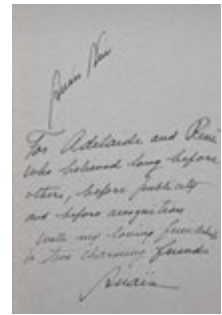 Anaïs Nin
For Adelaide and René
who believed long before
others, before publicity
and before recognition
with my loving friendship
to two charming friends
Anaïs